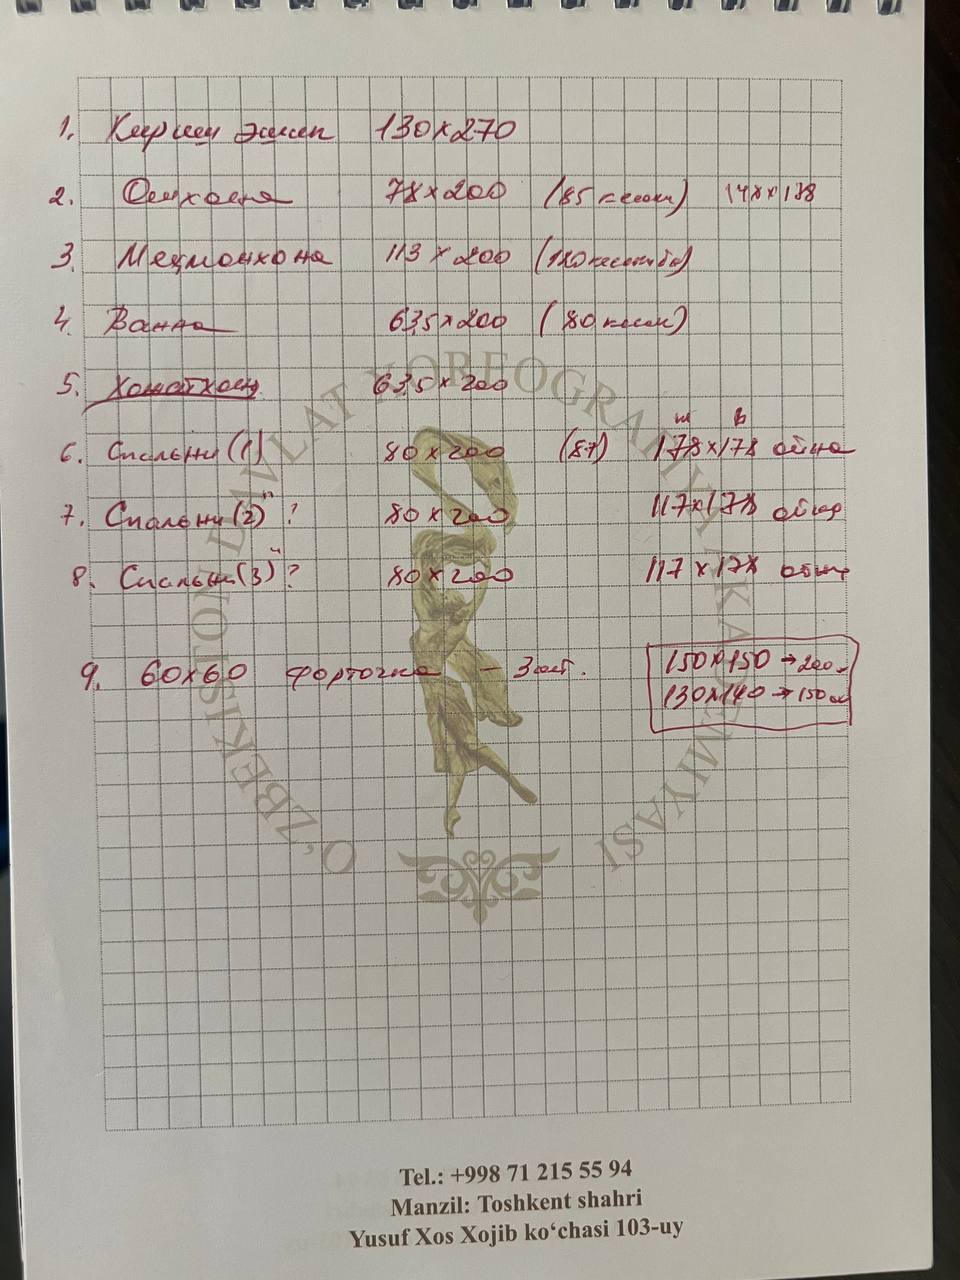 1. Кириш эшик 130x270
2. Ошхона 78x200 (85 кесак) 148x178
3. Меҳмонхона 113x200 (120 кесакida)
4. Ванна 63,5x200 (80 кесак)
5. Хожатхона 63,5x200
ш в
6. Спальни (1) 80x200 (87) 178x178 ойна
7. Спальни (2)" ? 80x200 117x178 ойна
8. Спальни (3)" ? 80x200 117x178 ойна
9. 60x60 форточка - 3 шт.
150x150 → 200
130x140 → 150
O'ZBEKISTON DAVLAT XOREOGRAFIYA AKADEMIYASI
Tel.: +998 71 215 55 94
Manzil: Toshkent shahri
Yusuf Xos Xojib ko‘chasi 103-uy